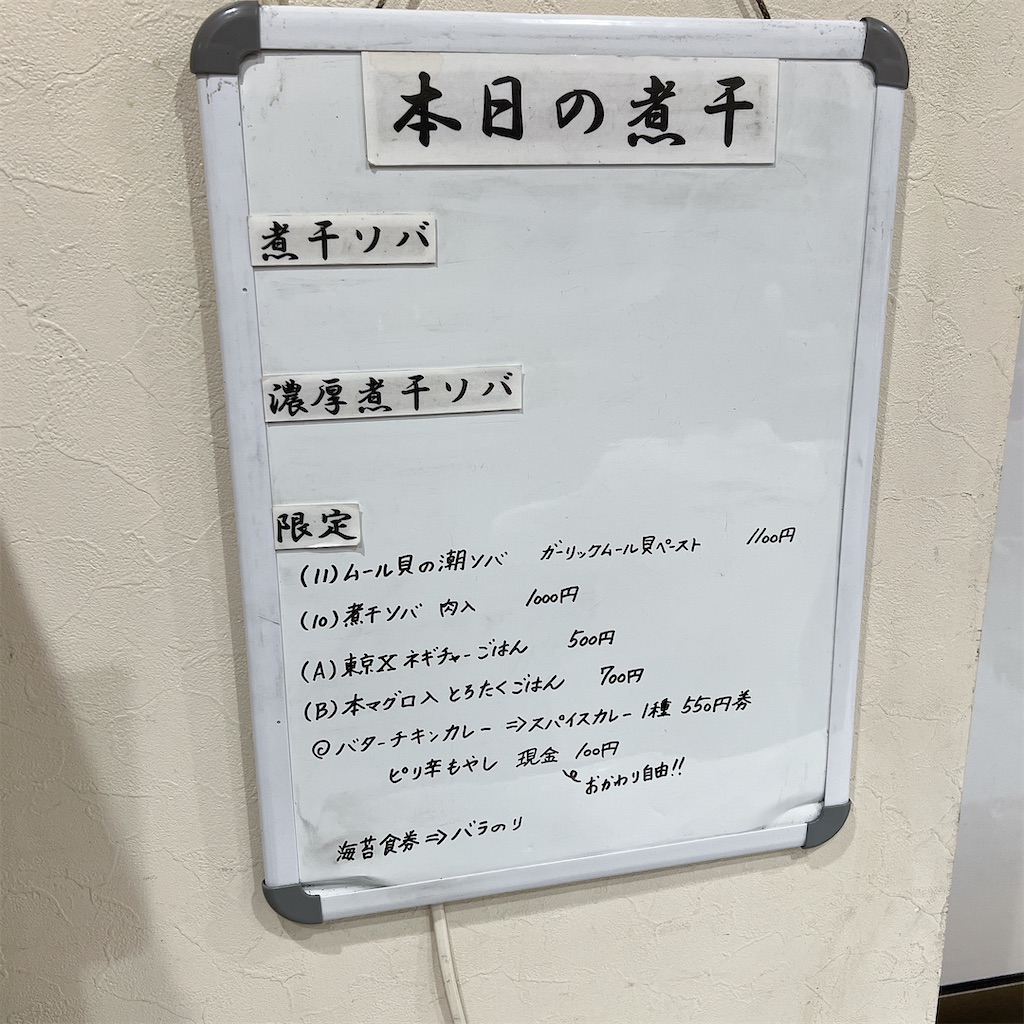 本日の煮干
煮干ソバ
濃厚煮干ソバ
限定
(11)ムール貝の潮ソバ ガーリックムール貝ペースト 1100円
(10)煮干ソバ 肉入 1000円
(A)東京X ネギチャーごはん 500円
(B)本マグロ入 とろたくごはん 700円
◎バターチキンカレー ⇒スパイスカレー1種 550円券
ピリ辛もやし 現金 100円
おかわり自由!!
海苔食券⇒バラのり